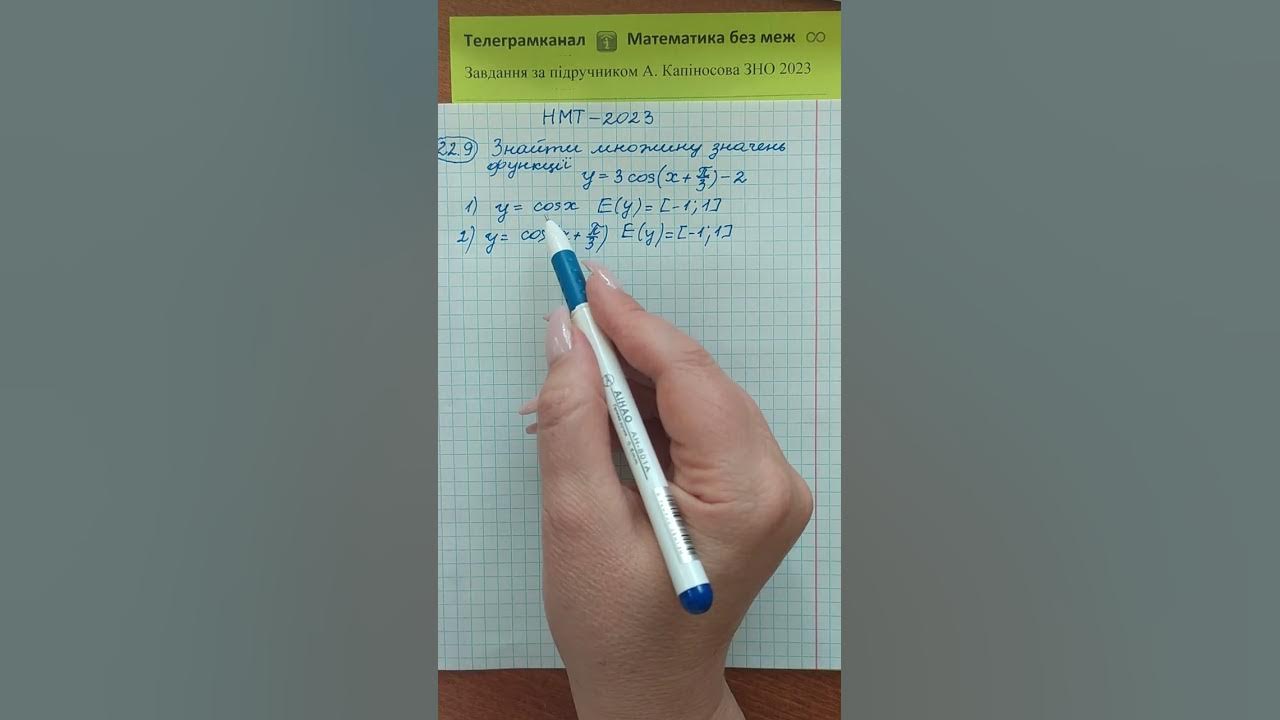 Телеграмканал Математика без меж ∞
Завдання за підручником А. Капіносова ЗНО 2023
НМТ-2023
22.9) Знайти множину значень
функції
y = 3 cos(x + π/3) - 2
1) y = cosx E(y) = [-1; 1]
2) y = cos(x + π/3) E(y) = [-1; 1]
AIHAO AH-801A